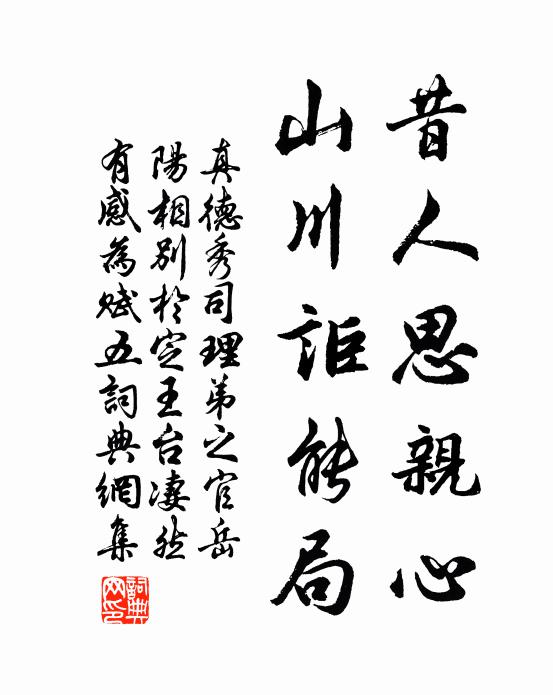 昔人思親心
山川詎能局
真德秀司理弟之官岳
陽相別於定王台凄然
有感為賦五詞典網集
詞典網印